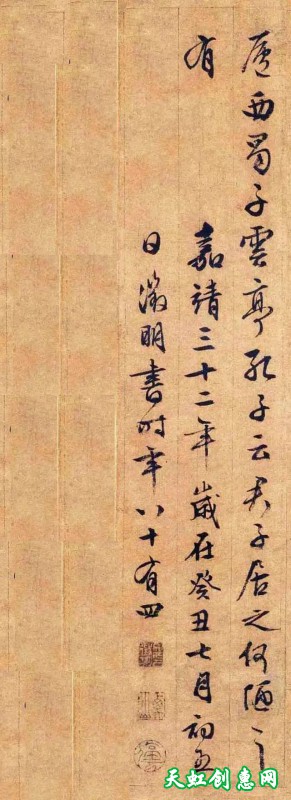 廬西蜀子雲亭孔子云君子居之何陋之
有
嘉靖三十二年歲在癸丑七月初五
日徵明書時年八十有四
天虹创惠网